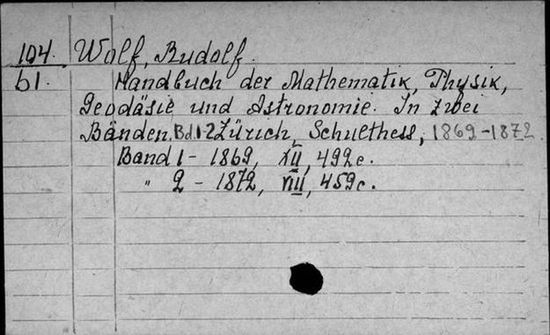 104. Wolf, Rudolf.
b1. Handbuch der Mathematik, Physik,
Geodäsie und Astronomie. In zwei
Bänden. Bd. 1-2 Zürich, Schulthess, 1869-1872.
Band 1 - 1869, XII, 492 c.
" 2 - 1872, VIII, 459 c.